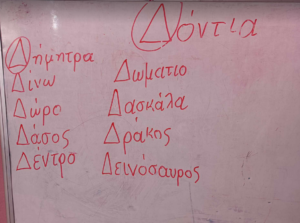 Δόντια
Δήμητρα
Δίνω Δωματιο
Δώρο Δασκάλα
Δάσος Δράκης
Δέντρο Δεινόσαυρος